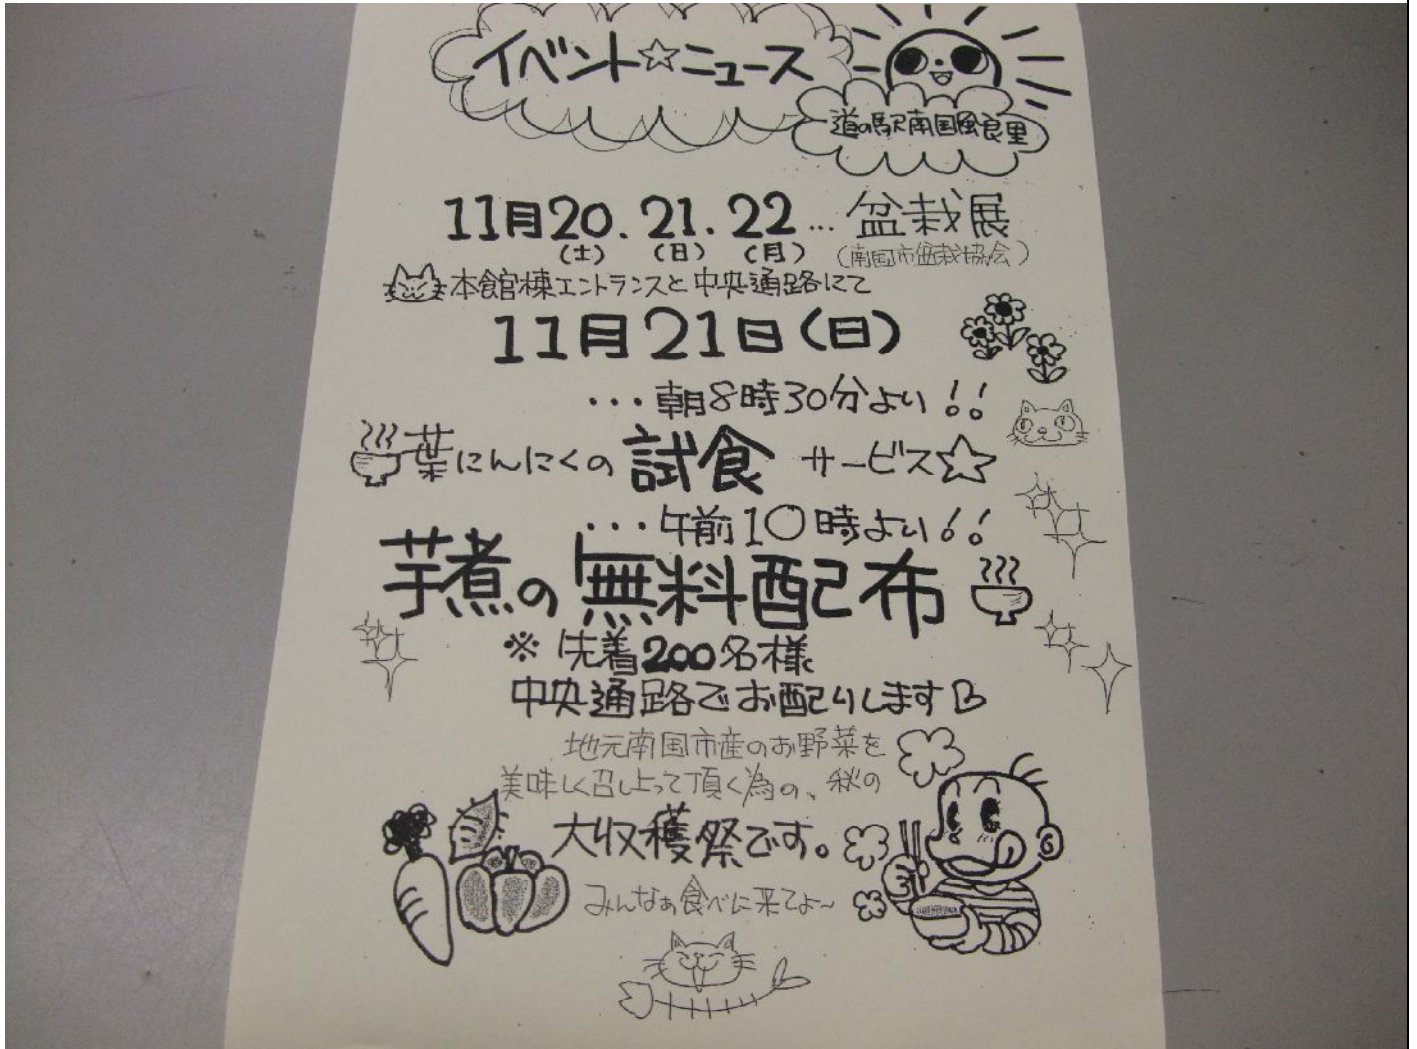 イベント☆ニュース
道の駅南国風良里
11月20.21.22…盆栽展
(土)(日)(月)(南国市盆栽協会)
本館棟エントランスと中央通路にて
11月21日(日)
・・・朝8時30分より!!
葉にんにくの試食サービス☆
・・・午前10時より!!
芋煮の無料配布
※先着200名様
中央通路でお配りします♡
地元南国市産のお野菜を
美味しく召し上って頂く為の、秋の
大収穫祭です。
みんなぁ食べに来てよ〜